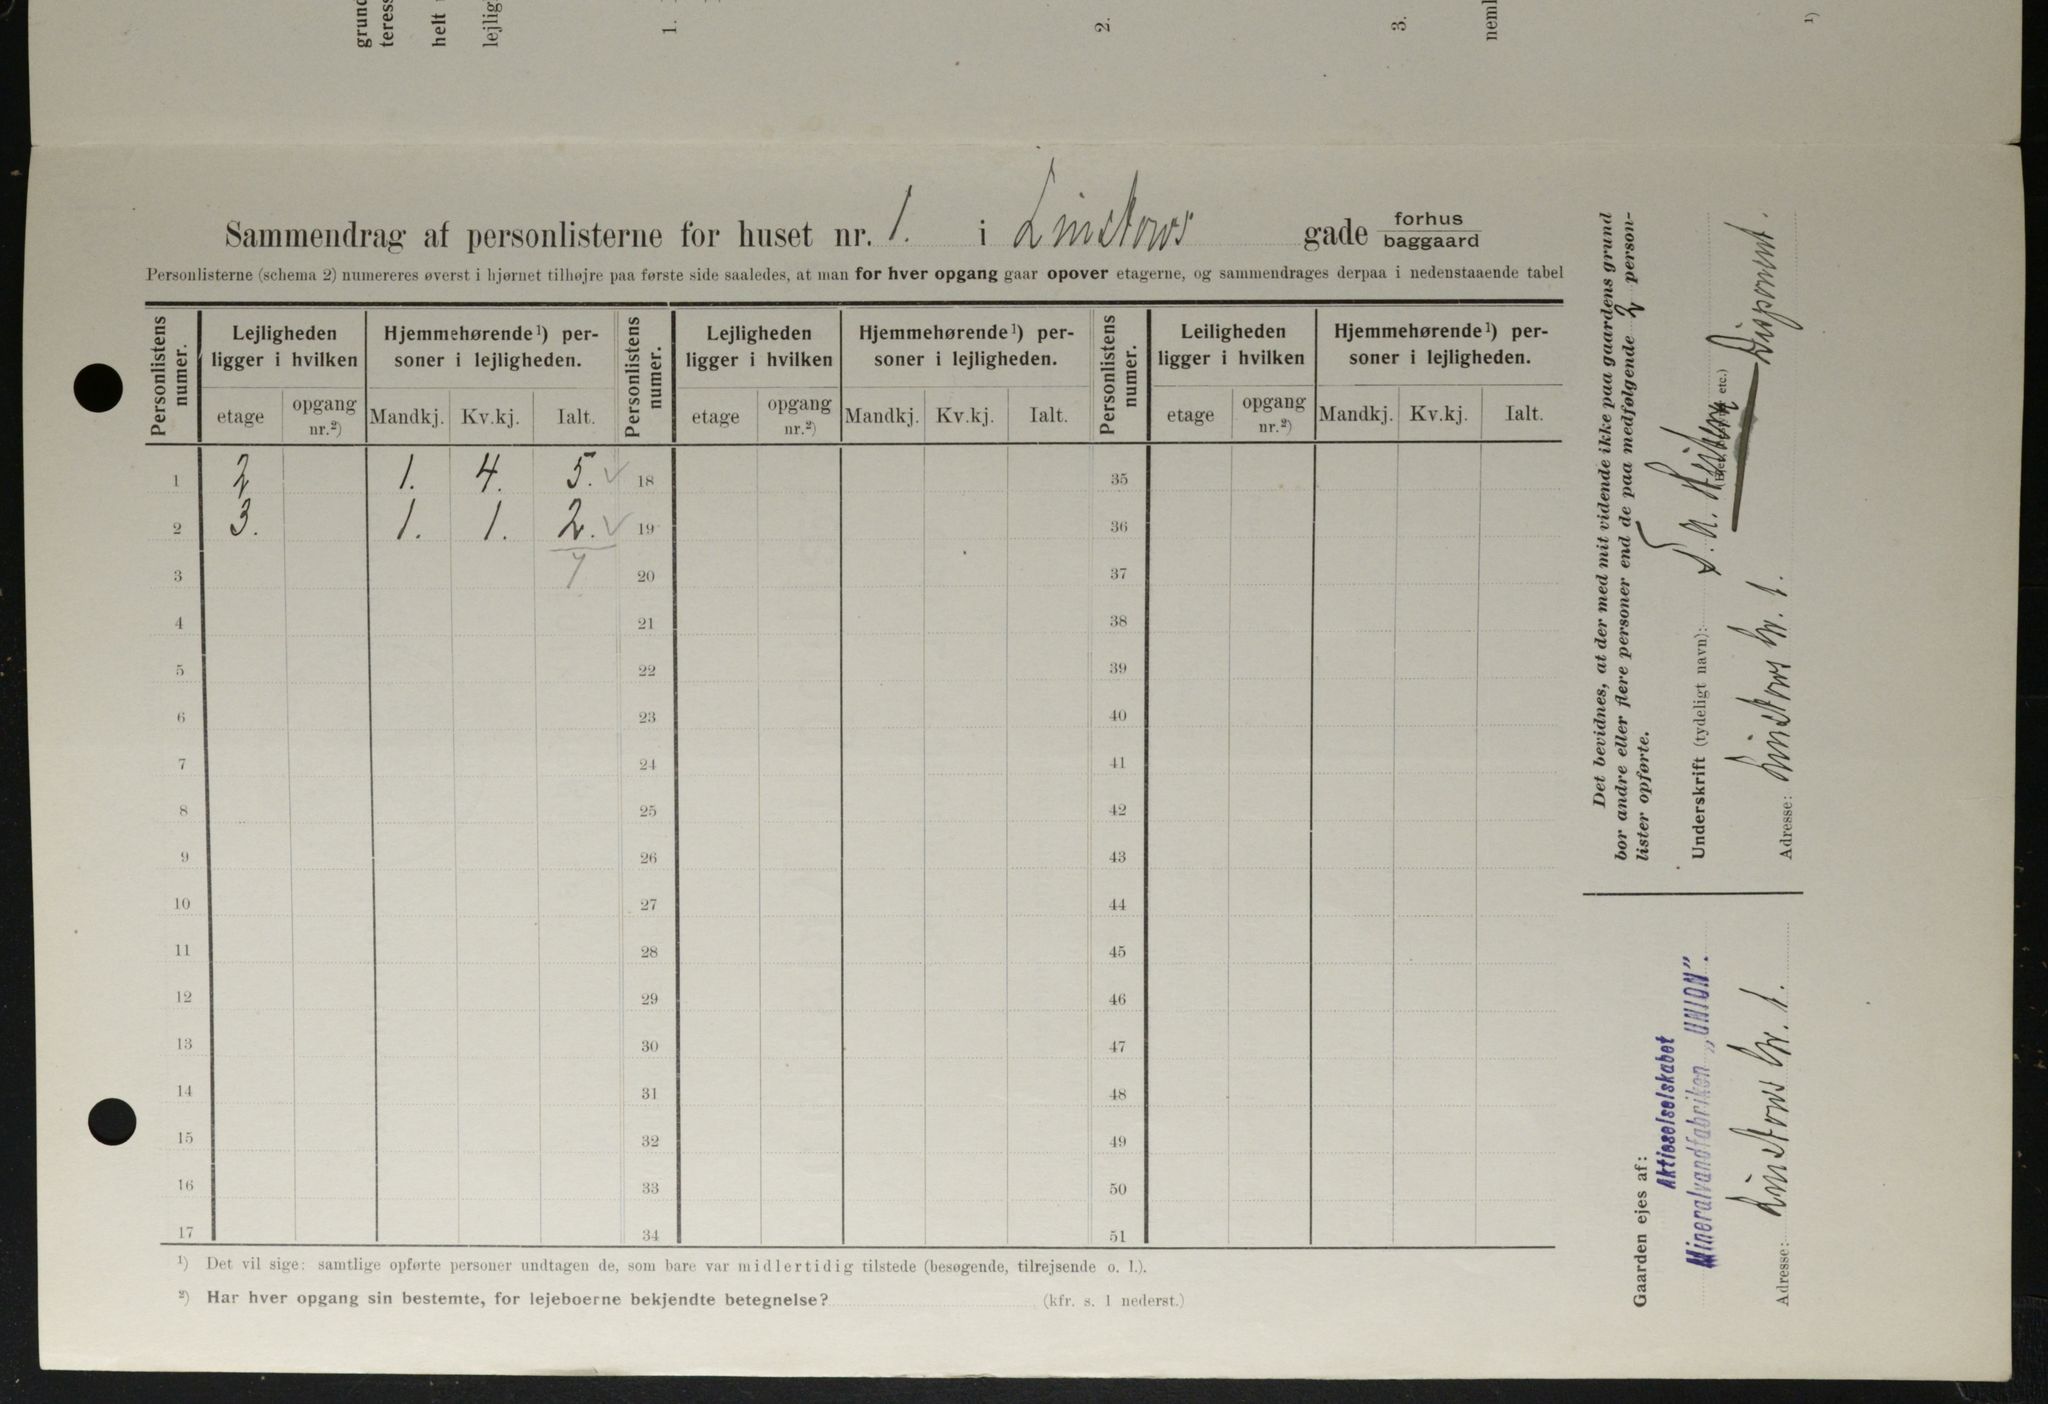 grund
teress
helt
lejlig
1.
2.
3.
neml
1)
Sammendrag af personlisterne for huset nr. 1. i Linstows gade forhus
baggaard
Personlisterne (schema 2) numereres øverst i hjørnet tilhøjre paa første side saaledes, at man for hver opgang gaar opover etagerne, og sammendrages derpaa i nedenstaaende tabel
Personlistens numer. Lejligheden ligger i hvilken Hjemmehørende¹) personer i lejligheden. Personlistens numer. Lejligheden ligger i hvilken Hjemmehørende¹) personer i lejligheden. Personlistens numer. Leiligheden ligger i hvilken Hjemmehørende¹) personer i lejligheden.
etage opgang nr.²) Mandkj. Kv.kj. Ialt. etage opgang nr.²) Mandkj. Kv.kj. Ialt. etage opgang nr.²) Mandkj. Kv.kj. Ialt.
1 2 1. 4. 5. ✓ 18 35
2 3. 1. 1. 2. ✓ 19 36
3 7 20 37
4 21 38
5 22 39
6 23 40
7 24 41
8 25 42
9 26 43
10 27 44
11 28 45
12 29 46
13 30 47
14 31 48
15 32 49
16 33 50
17 34 51
¹) Det vil sige: samtlige opførte personer undtagen de, som bare var midlertidig tilstede (besøgende, tilrejsende o. l.).
²) Har hver opgang sin bestemte, for lejeboerne bekjendte betegnelse? (kfr. s. 1 nederst.)
Det bevidnes, at der med mit vidende ikke paa gaardens grund
bor andre eller flere personer end de paa medfølgende 2 person-
lister opførte.
Underskrift (tydeligt navn):
Disponent.
Adresse: Linstows Gr. 1.
Gaarden ejes af:
Aktieselselskabet
Mineralvandfabriken „UNION”.
Adresse: Linstows Gr. 1.